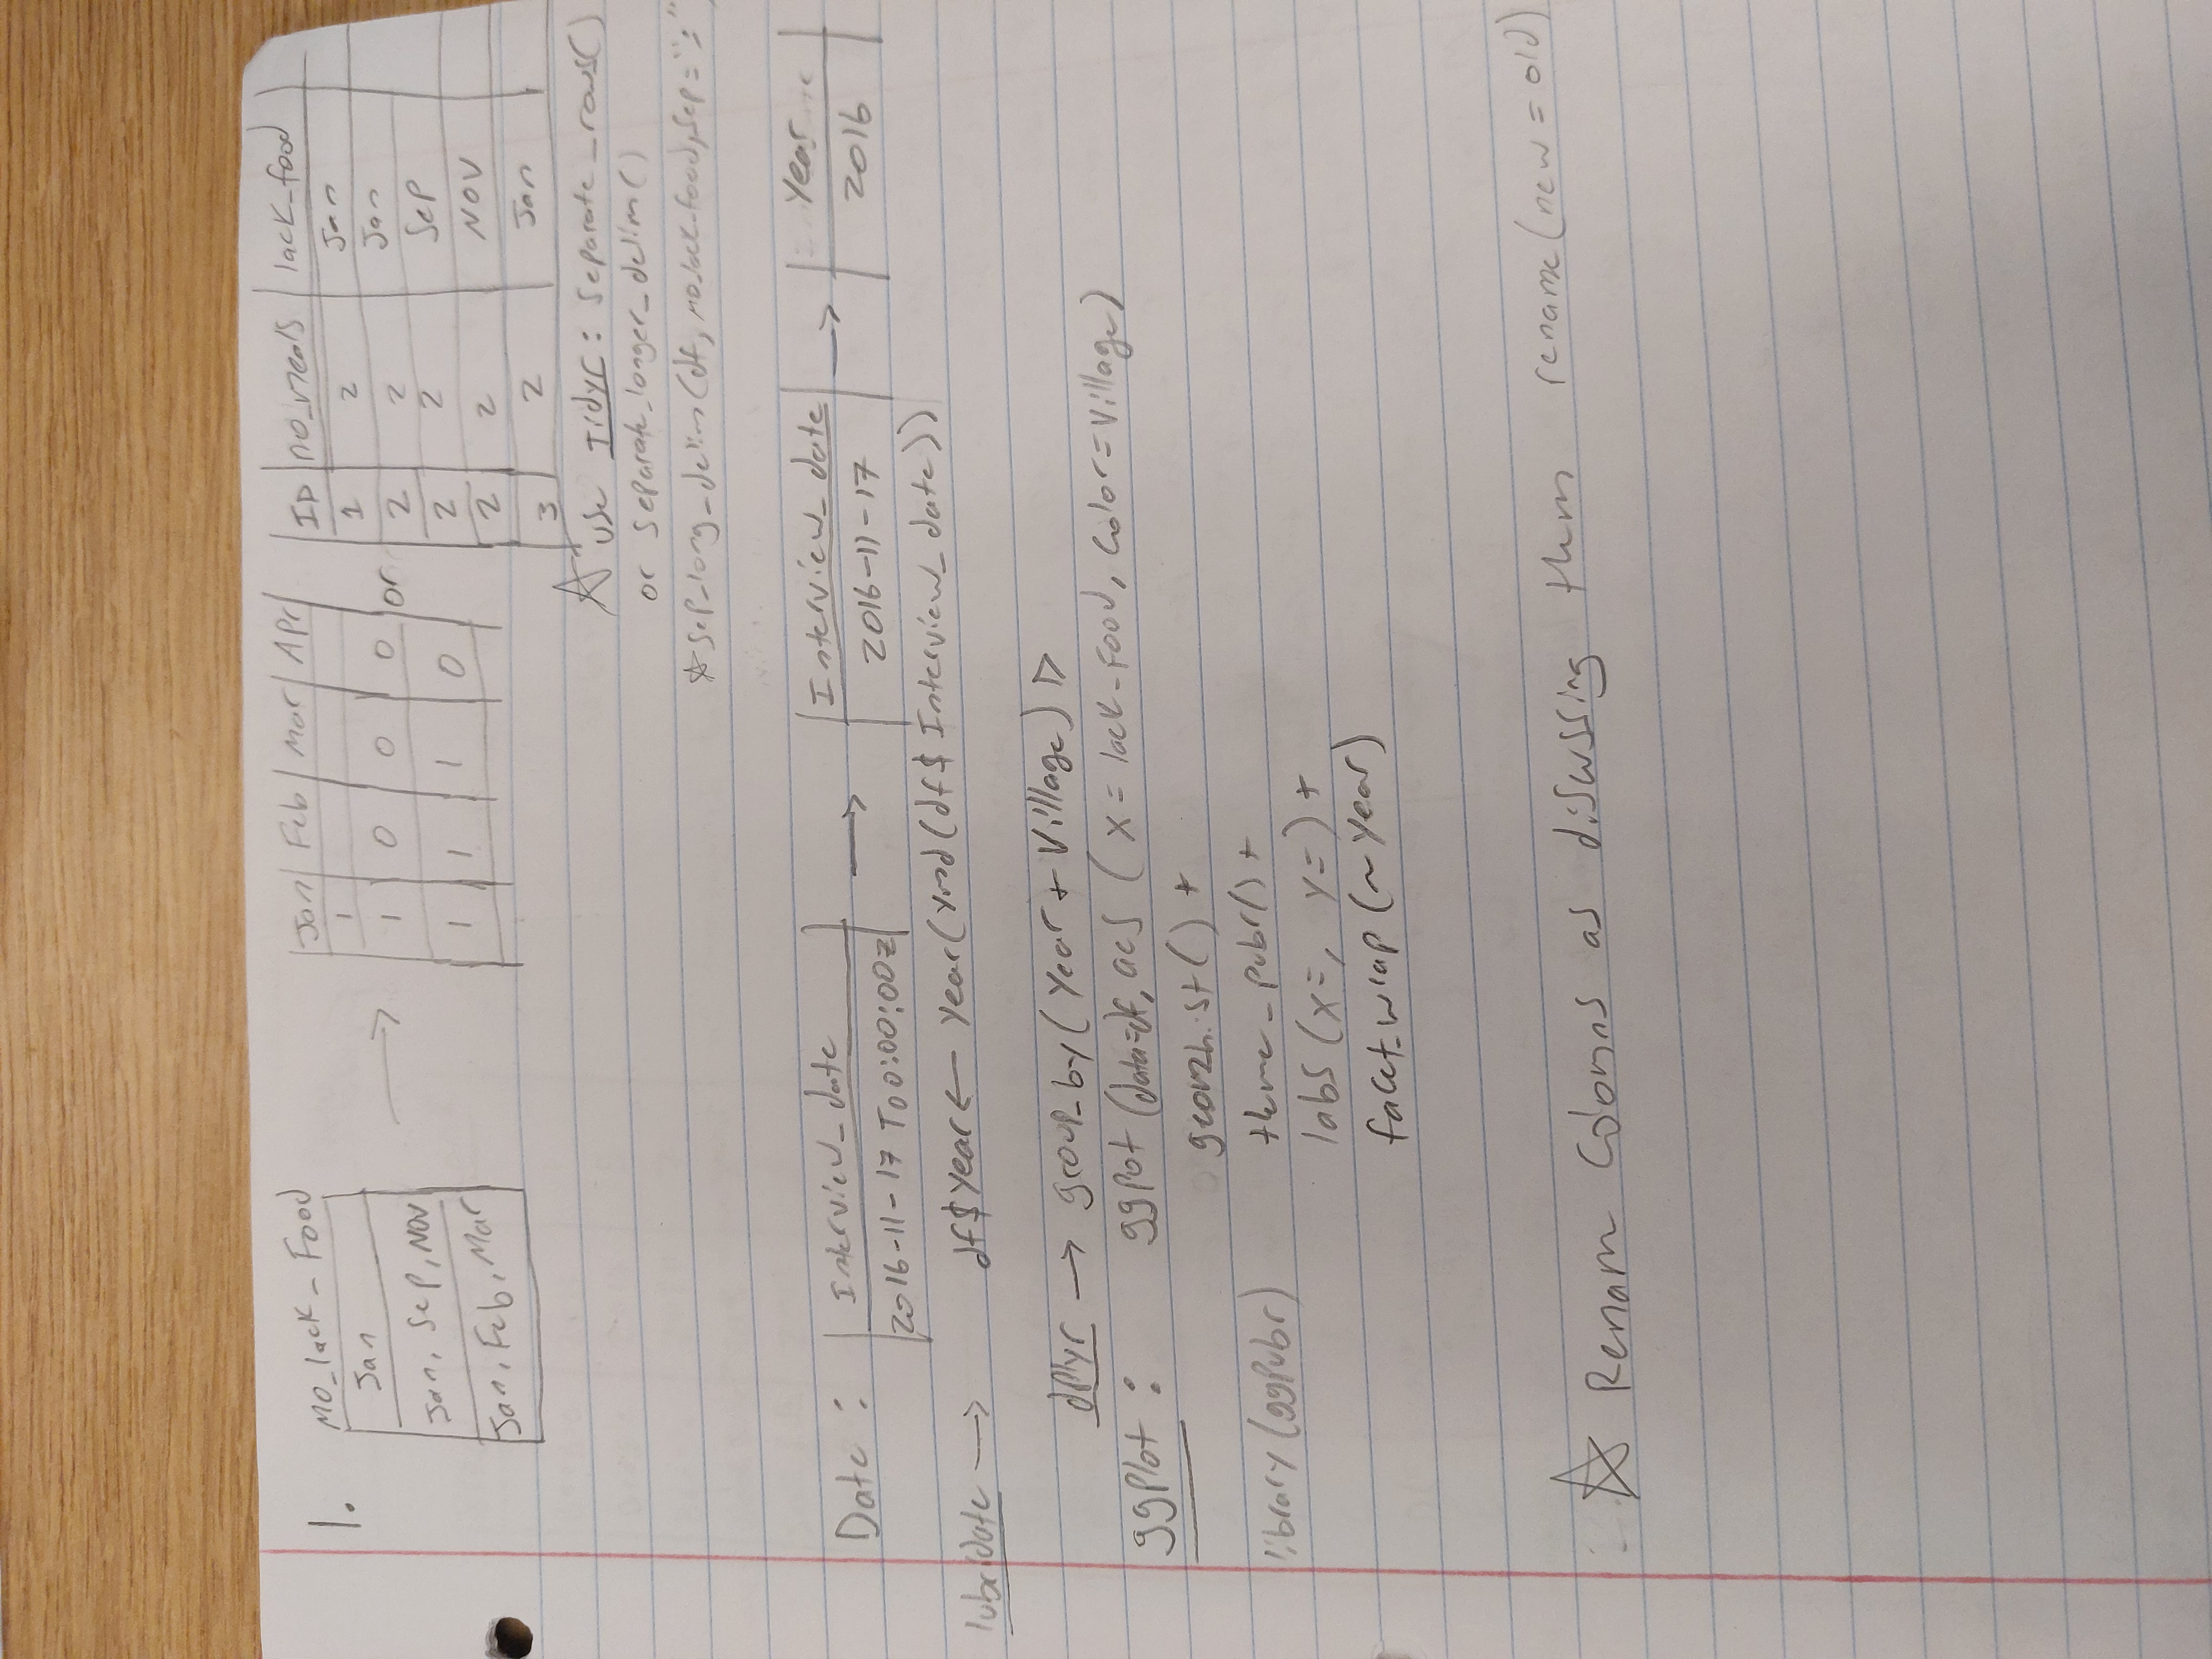 1.
Mo_lack_Food
Jan
Jan, Sep, Nov
Jan, Feb, Mar
→
Jan Feb Mar Apr
1
1 0 0 0
1 1 1 0
or
ID no_meals lack_food
1 2 Jan
2 2 Jan
2 2 Sep
2 2 Nov
3 2 Jan
☆ use Tidyr: separate_rows()
or separate_longer_delim()
☆ sep_long_delim(df, mo_lack_food, sep=";")
Date: Interview_date → Interview_date → Year
2016-11-17 T00:00:00Z 2016-11-17 2016
lubridate → df$Year ← Year(ymd(df$Interview_date))
dplyr → group_by(Year + Village) |>
ggplot: ggpot (data=df, aes (x = lack_Food, Color=Village)
geom_hist() +
library(ggpubr) theme_pubr() +
labs (x=, y=) +
facet_wrap (~Year)
☆ Rename Columns as discussing them rename(new = old)